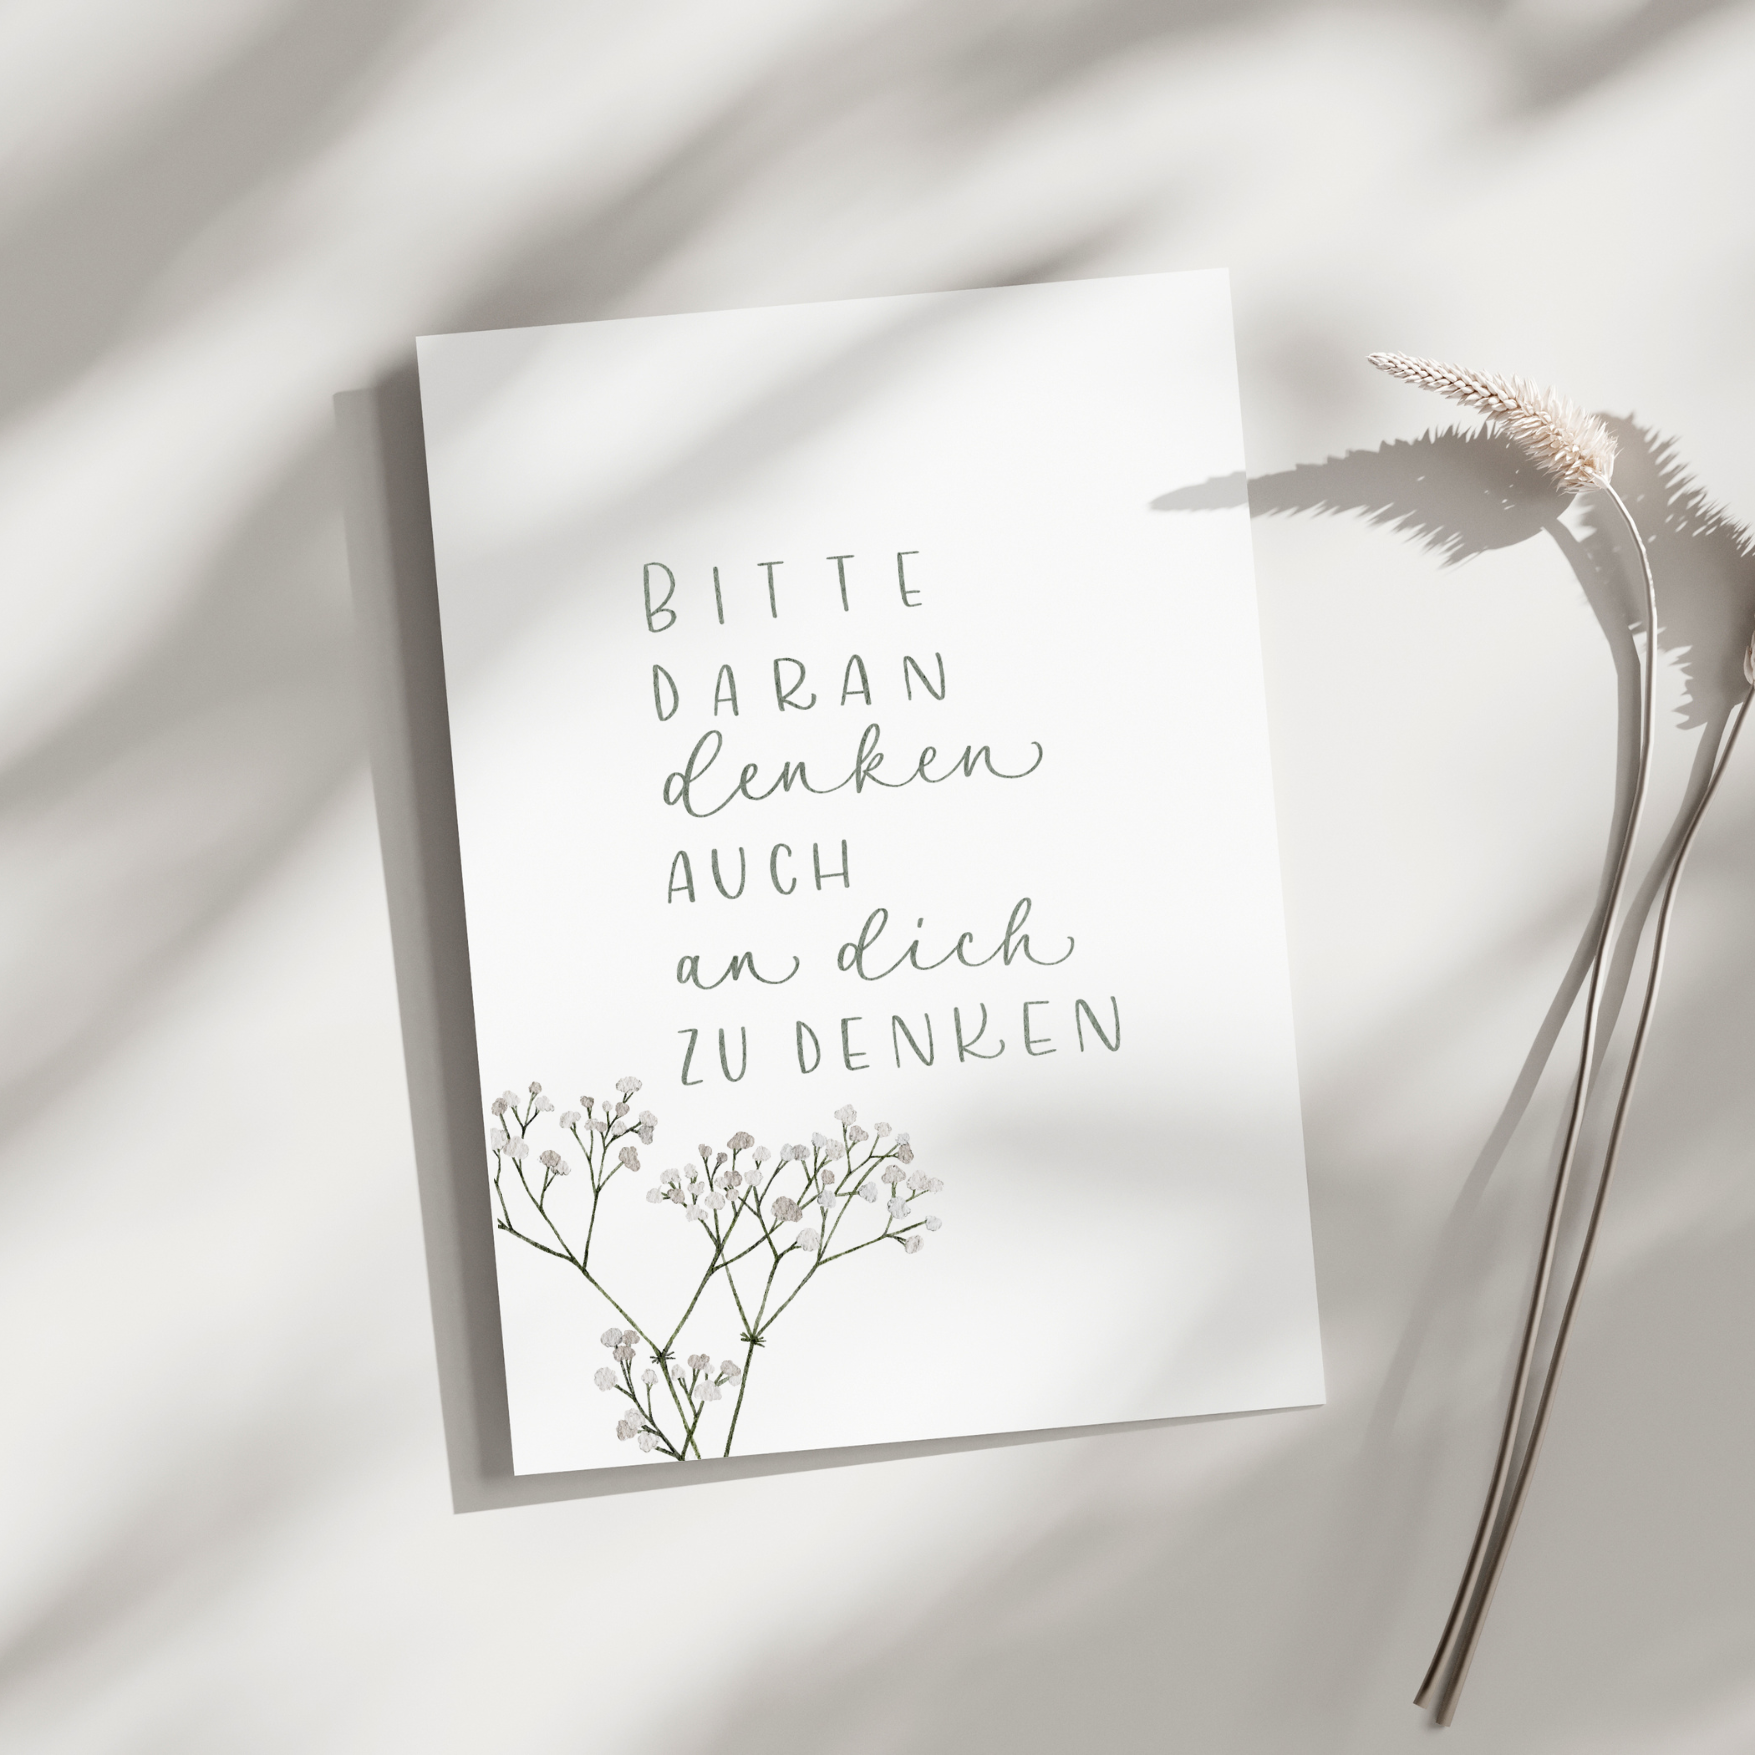 BITTE
DARAN
denken
AUCH
an dich
ZU DENKEN